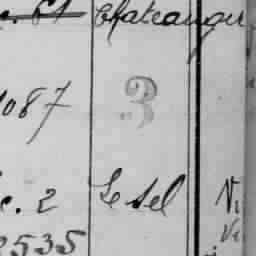 c. 61 Chateaugu
1087 3
c. 2 Le Sel
2535